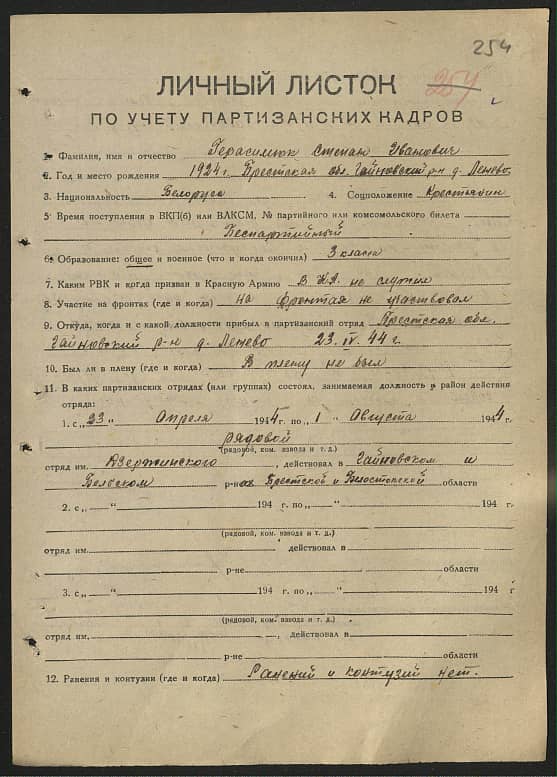 254
ЛИЧНЫЙ ЛИСТОК
257
ПО УЧЕТУ ПАРТИЗАНСКИХ КАДРОВ
1. Фамилия, имя и отчество Герасимюк Степан Иванович
2. Год и место рождения 1924г. Брестская обл. Гайновский р-н д. Ленево
3. Национальность Белорус 4. Соцположение Крестьянин
5. Время поступления в ВКП(б) или ВЛКСМ, № партийного или комсомольского билета
Беспартийный
6. Образование: общее и военное (что и когда окончил) 3 класса
7. Каким РВК и когда призван в Красную Армию В К.А. не служил
8. Участие на фронтах (где и когда) на фронтах не участвовал
9. Откуда, когда и с какой должности прибыл в партизанский отряд Брестская обл.
Гайновский р-н д. Ленево 23. IV. 44 г.
10. Был ли в плену (где и когда) В плену не был
11. В каких партизанских отрядах (или группах) состоял, занимаемая должность и район действия
отряда:
1. с „23“ Апреля 1944 г. по „1“ Августа 1944 г.
рядовой
(рядовой, ком. взвода и т. д.)
отряд им. Дзержинского, действовал в Гайновском и
Бельском р-нах Брестской и Белостокской области
2. с „ “ 194 г. по „ “ 194 г.
(рядовой, ком. взвода и т. д.)
отряд им. действовал в
р-не области
3. с „ “ 194 г. по „ “ 194 г
(рядовой, ком. взвода и т. д.)
отряд им. , действовал в
р-не области
12. Ранения и контузии (где и когда) Ранений и контузий нет.